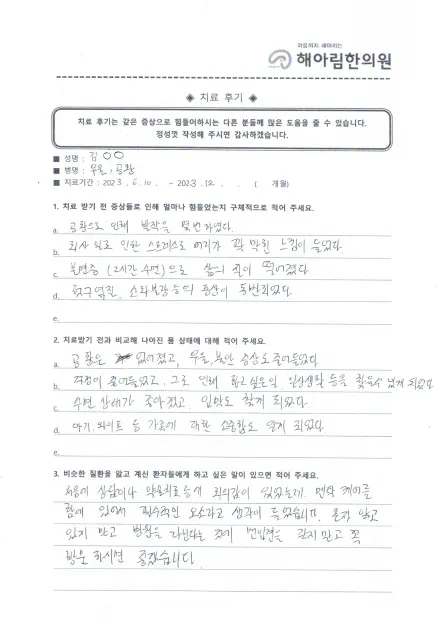 마음까지 헤아리는
해아림한의원
◈ 치료 후기 ◈
치료 후기는 같은 증상으로 힘들어하시는 다른 분들께 많은 도움을 줄 수 있습니다.
정성껏 작성해 주시면 감사하겠습니다.
■ 성명 : 김○○
■ 병명 : 우울, 공황
■ 치료기간 : 2023. 6. 10. ~ 2023. 12. . ( 개월)
1. 치료 받기 전 증상들로 인해 얼마나 힘들었는지 구체적으로 적어 주세요.
a. 공황으로 인해 발작을 몇번하였다.
b. 회사 일로 인한 스트레스로 머리가 꽉 막힌 느낌이 들었다.
c. 불면증 (2시간 수면)으로 삶의 질이 떨어졌다
d. 헛구역질, 소화불량 등의 증상이 동반되었다.
e.
2. 치료받기 전과 비교해 나아진 몸 상태에 대해 적어 주세요.
a. 공황은 없어졌고, 우울, 불안 증상도 줄어들었다
b. 걱정이 줄어들었고, 그로 인해 하고싶은일, 일상생활 등을 찾을수 있게 되었다
c. 수면 상태가 좋아졌고, 입맛도 찾게 되었다.
d. 아기, 와이프 등 가족에 대한 소중함도 알게 되었다.
e.
3. 비슷한 질환을 앓고 계신 환자들에게 하고 싶은 말이 있으면 적어 주세요.
처음에 상담이나 약물치료 등에 회의감이 있었는데, 멘탈 케어를
함에 있어서 필수적인 요소라고 생각이 들었습니다. 혼자 앓고
있지 말고 병원을 다닌다는 것에 선입견을 갖지말고 꼭
방문 하시면 좋겠습니다.